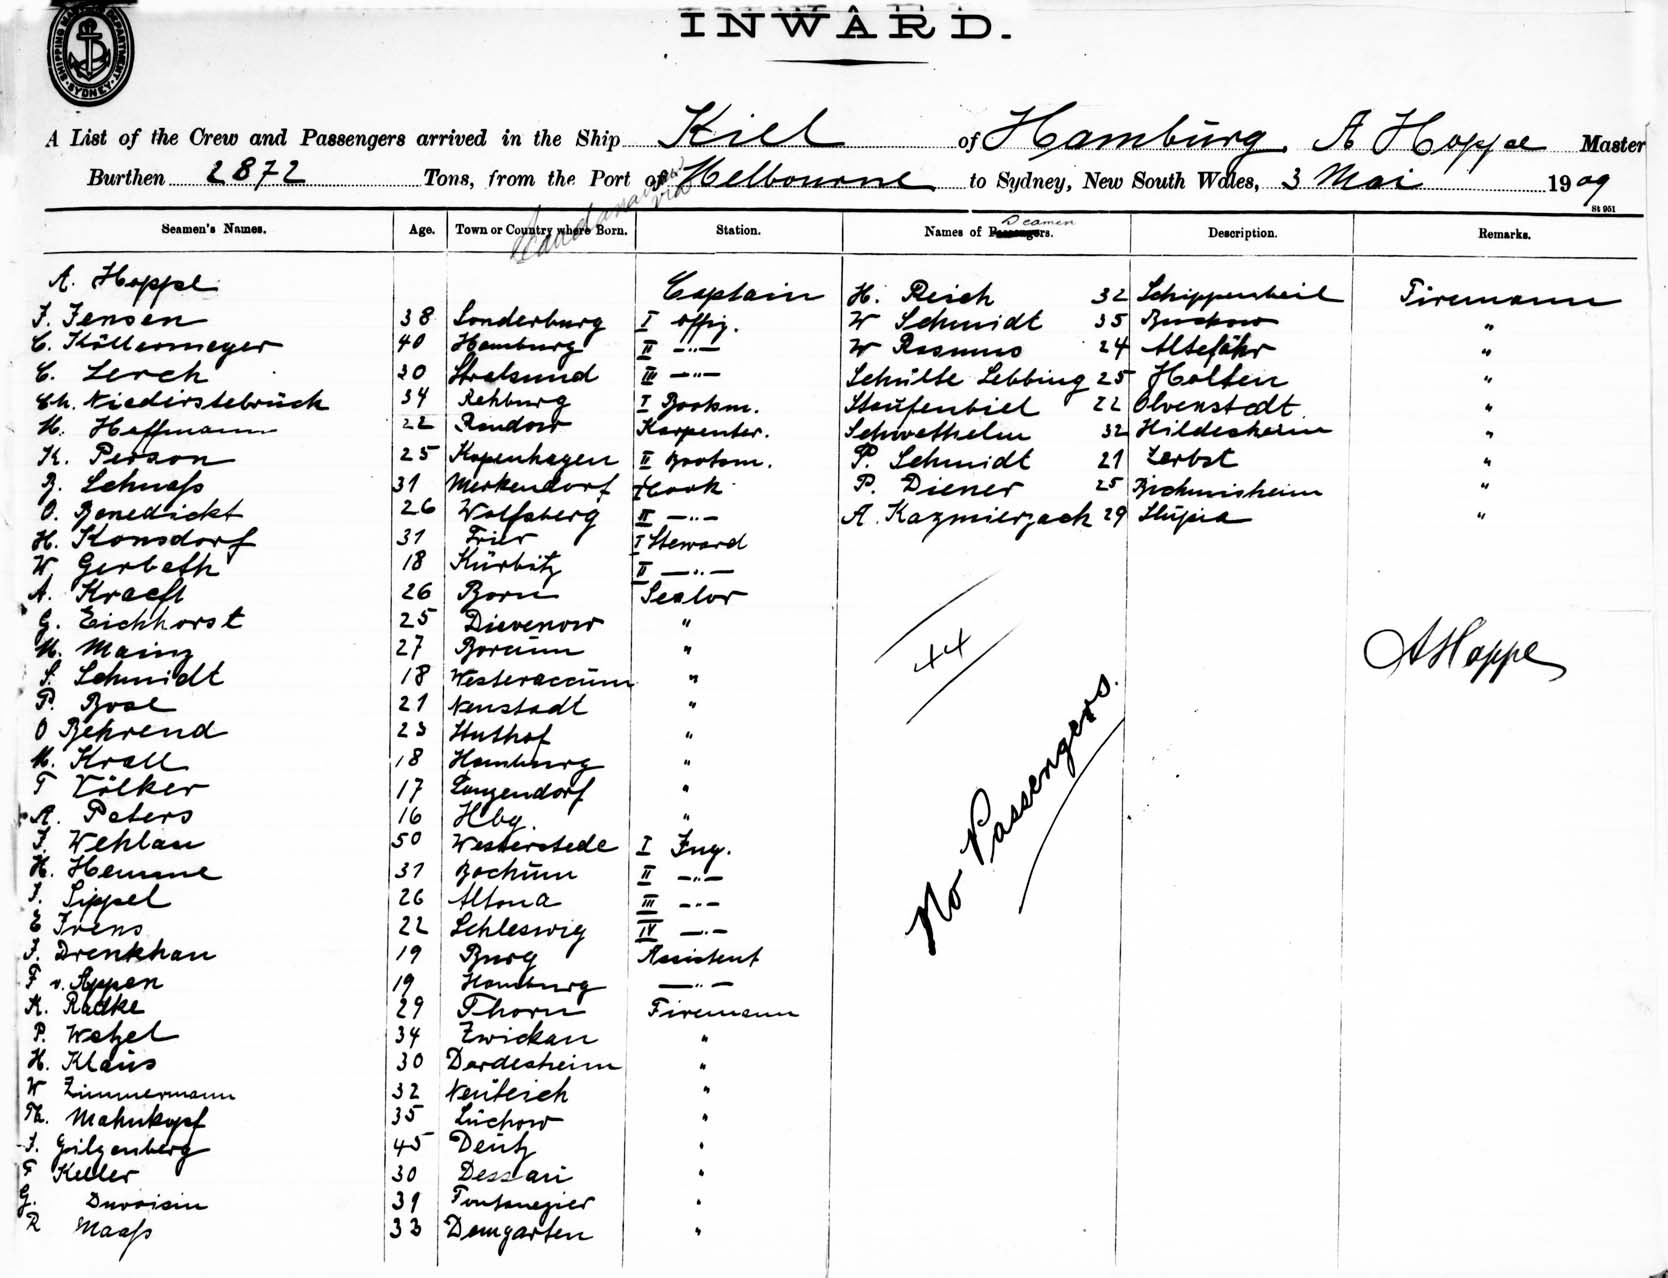 SHIPPING MASTER'S DEPARTMENT SYDNEY
INWARD.
A List of the Crew and Passengers arrived in the Ship Kiel of Hamburg, A Hoppe Master
Burthen 2872 Tons, from the Port of Melbourne to Sydney, New South Wales, 3 Mai 1909
St 951
Seamen's Names. Age. Town or Country where Born. Station. Names of Passengers. Seamen Description. Remarks.
A. Hoppe Captain H. Reich 32 Schippenbeil Firemann
J. Jensen 38 Sonderburg I Offiz. W Schmidt 35 Buckow "
C. Köllermeyer 40 Hamburg II —"— W Rasmus 24 Altefähr "
C. Lerch 30 Stralsund III —"— Schulte Lebbing 25 Holten "
Ch. Niederstebrück 34 Rehburg I Bootsm. Staufenbiel 22 Olvenstedt "
H. Hoffmann 22 Randow Karpenter. Schwethelm 32 Hildesheim "
K. Person 25 Kopenhagen II Bootsm. P. Schmidt 21 Zerbst "
B. Schnaß 31 Merkendorf I Cook P. Diener 25 "
O. Benedickt 26 Wolfsberg II —"— A. Kazmierzack 29 Slupia "
H. Konsdorf 31 Trier I Steward
W Gerbeth 18 Kürbitz II —"—
A. Kraeft 26 Born Seelor
G. Eichhorst 25 Dievenow "
M. Mainz 27 Borcum "
S. Schmidt 18 Westeraccum "
P. Bose 21 Neustadt "
O Behrend 23 Huthof "
M. Krall 18 Hamburg "
F Völker 17 Langendorf "
A. Peters 16 Hbg. "
J. Wehlau 50 Westerstede I Ing.
H. Hemme 31 Bochum II —"—
J. Sippel 26 Altona III —"—
E Irens 22 Schleswig IV —"—
J. Drenkhan 19 Burg Assistent
F v. Appen 19 Hamburg —"—
K. Radke 29 Thorn Firemann
P. Wetzel 34 Zwickau "
H. Klaus 30 Dardesheim "
W Zimmermann 32 Neuteich "
Th. Mahnkopf 35 Lüchow "
J. Gilzenberg 45 Deutz "
F Keller 30 Dessau "
G. Duvoisin 39 Fontanezier "
R Maaß 33 Demgarten "
44
No Passengers.
A Hoppe